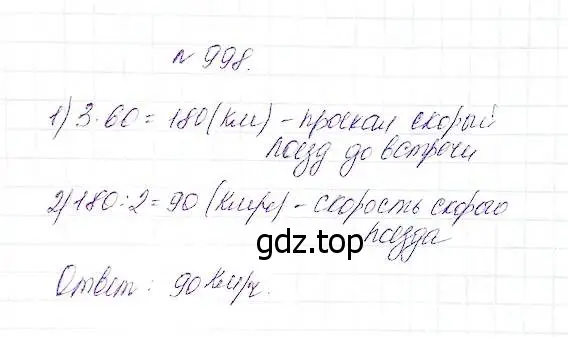 № 998.
1) 3·60 = 180 (км) - проехал скорый
поезд до встречи
2) 180:2 = 90 (км/ч) - скорость скорого
поезда
gdz.top
Ответ: 90 км/ч.